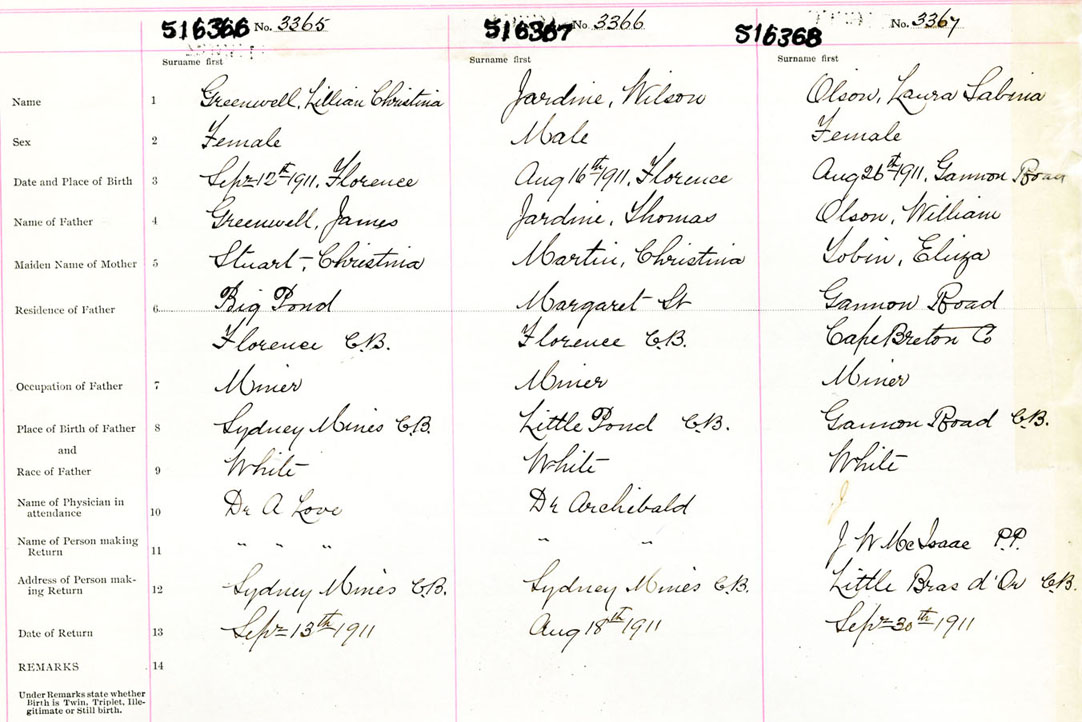 516366 No. 3365 516367 No. 3366 516368 No. 3367
Surname first Surname first Surname first
Name 1 Greenwell, Lillian Christina Jardine, Wilson Olson, Laura Sabina
Sex 2 Female Male Female
Date and Place of Birth 3 Sept 12th 1911, Florence Aug 16th 1911, Florence Aug 26th 1911, Gannon Road
Name of Father 4 Greenwell, James Jardine, Thomas Olson, William
Maiden Name of Mother 5 Stuart, Christina Martin, Christina Tobin, Eliza
Residence of Father 6 Big Pond Margaret St Gannon Road
Florence C.B. Florence C.B. Cape Breton Co
Occupation of Father 7 Miner Miner Miner
Place of Birth of Father 8 Sydney Mines C.B. Little Pond C.B. Gannon Road C.B.
and
Race of Father 9 White White White
Name of Physician in
attendance 10 Dr A Love Dr Archibald J
Name of Person making
Return 11 " " " " " J W McIsaac P.P.
Address of Person mak-
ing Return 12 Sydney Mines C.B. Sydney Mines C.B. Little Bras d'Or C.B.
Date of Return 13 Sept 13th 1911 Aug 18th 1911 Sept 30th 1911
REMARKS 14
Under Remarks state whether
Birth is Twin, Triplet, Ille-
gitimate or Still birth.